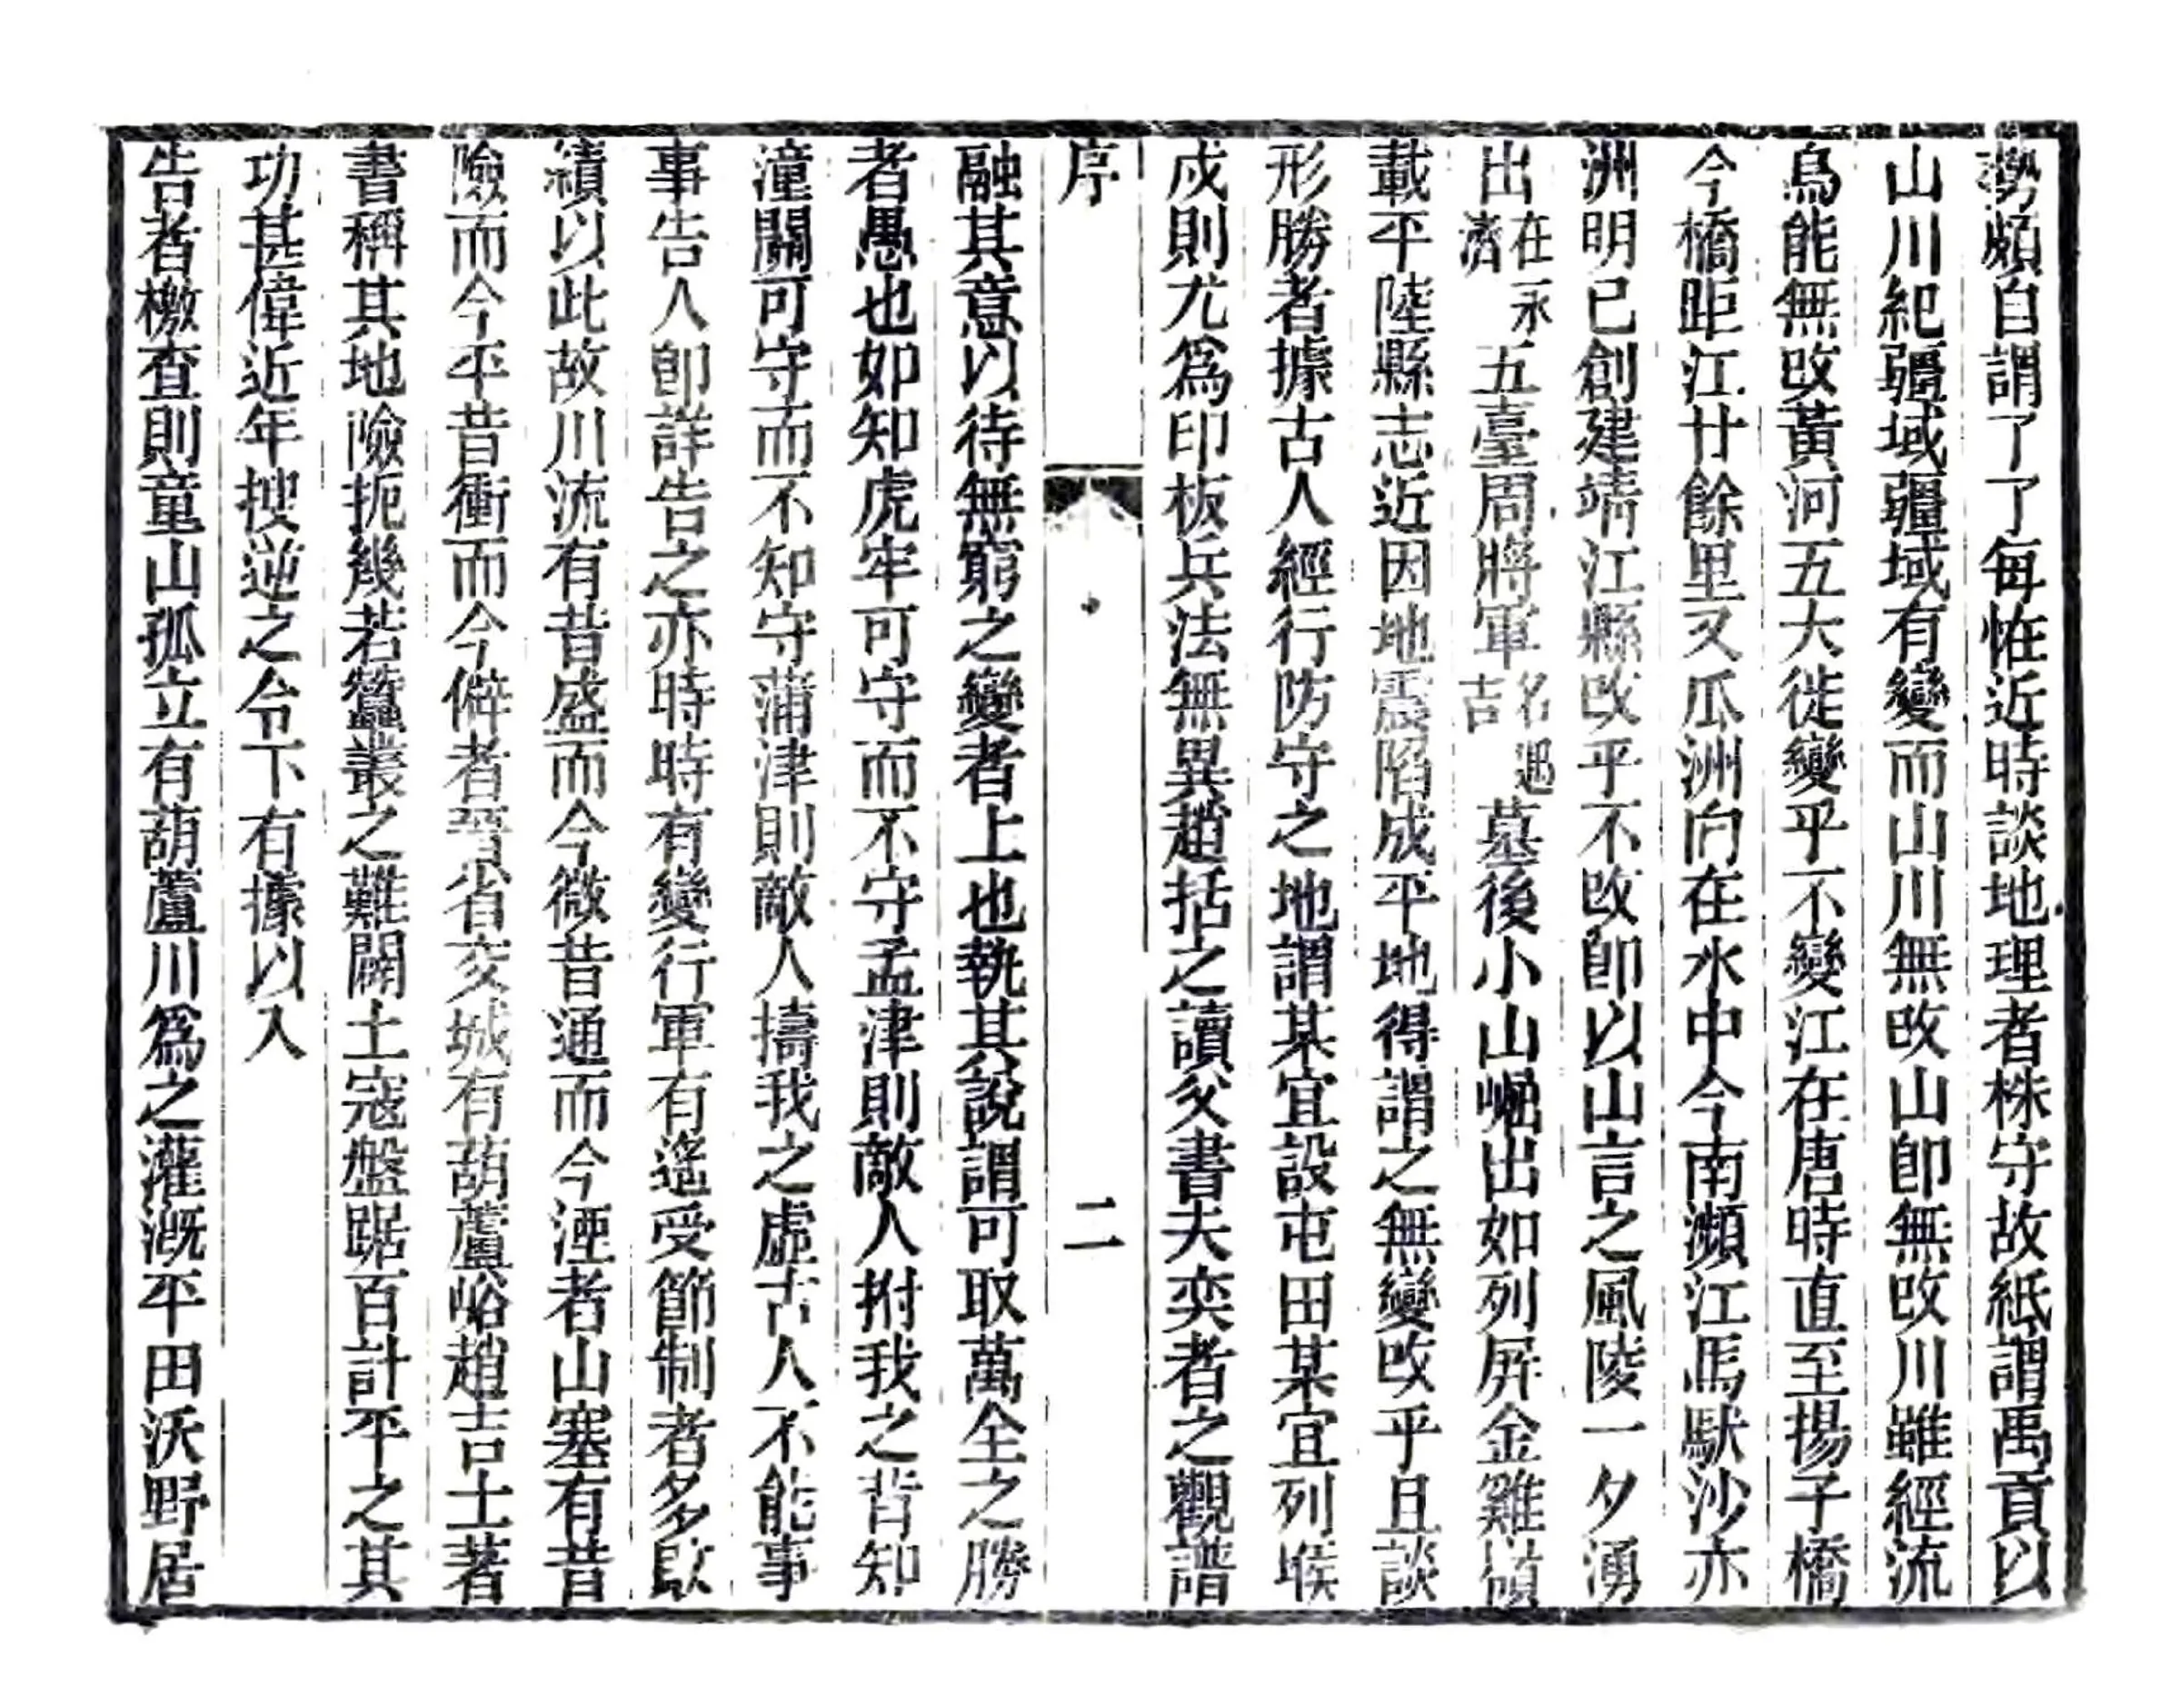 勢頗自謂了了每恠近時談地理者株守故紙謂禹貢以
山川紀疆域疆域有變而山川無攺山卽無攺川雖經流
烏能無攺黃河五大徙變乎不變江在唐時直至揚子橋
今橋距江廿餘里又瓜洲向在水中今南瀕江馬馱沙亦
洲明已創建靖江縣攺乎不攺卽以山言之風陵一夕湧
出在永濟五臺周將軍名遇吉墓後小山崛出如列屏金雞傾
載平陸縣志近因地震陷成平地得謂之無變攺乎且談
形勝者據古人經行防守之地謂某宜設屯田某宜列堠
戍則尤爲印板兵法無異趙括之讀父書夫奕者之觀譜
序 二
融其意以待無窮之變者上也執其說謂可取萬全之勝
者愚也如知虎牢可守而不守孟津則敵人拊我之背知
潼關可守而不知守蒲津則敵人擣我之虛古人不能事
事告人卽詳告之亦時時有變行軍有遙受節制者多敗
績以此故川流有昔盛而今微昔通而今湮者山塞有昔
險而今平昔衝而今僻者晉省交城有葫蘆峪趙吉士著
書稱其地險扼幾若蠶叢之難闢土寇盤踞百計平之其
功甚偉近年搜逆之令下有據以入
告者檄查則童山孤立有葫蘆川爲之灌漑平田沃野居